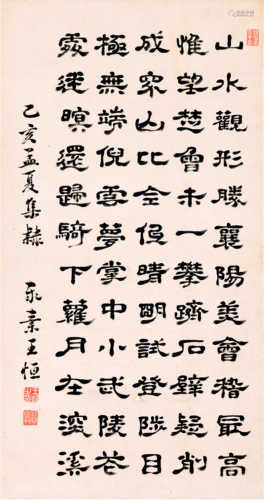 山水觀形勝襄陽美會稽最高
惟望楚曾未一攀躋石壁疑削
成眾山比全低晴明試登陟目
極無端倪雲夢掌中小武陵花
處迷暝還歸騎下蘿月在深溪
乙亥孟夏集隸
素王恒